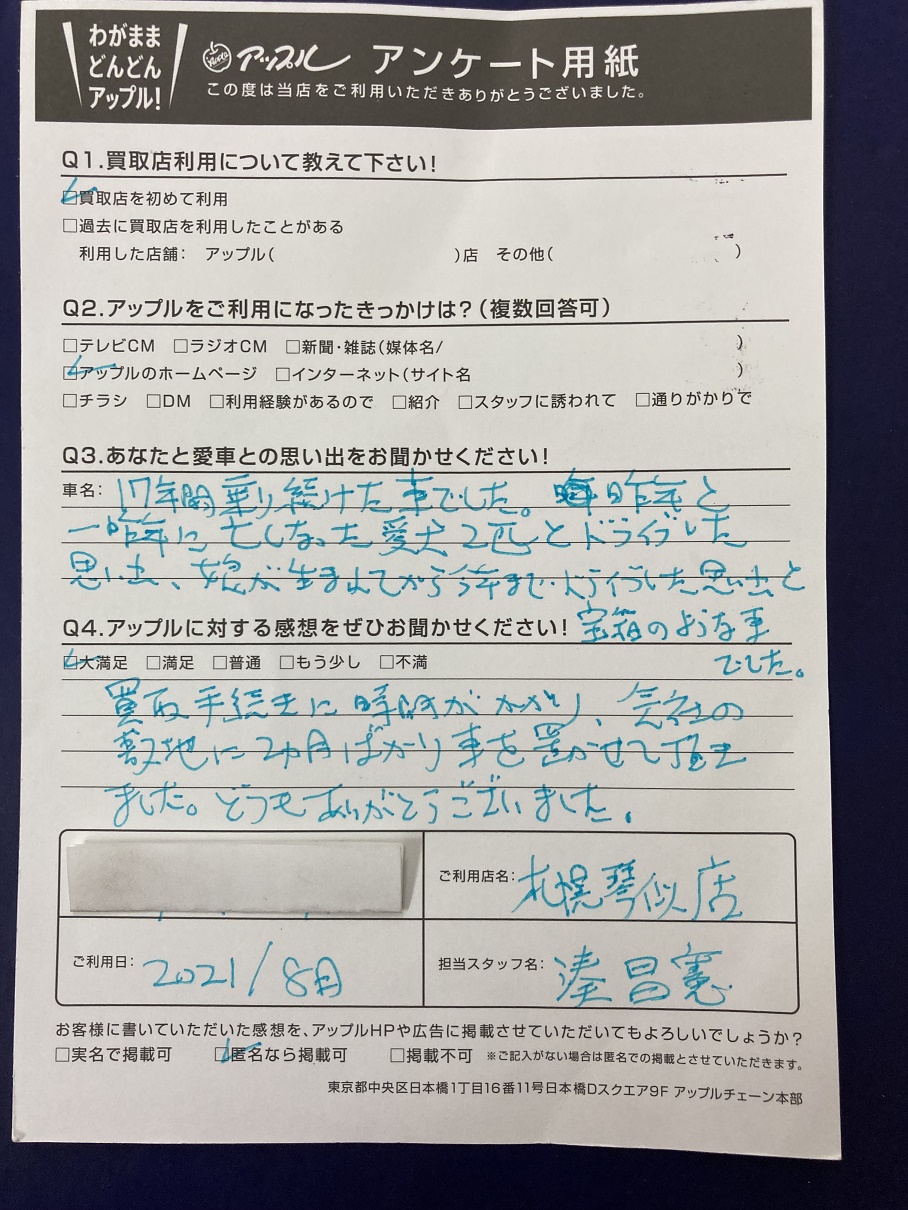 わがまま
どんどん
アップル!
アップル アンケート用紙
この度は当店をご利用いただきありがとうございました。
Q1.買取店利用について教えて下さい!
☑買取店を初めて利用
□過去に買取店を利用したことがある
利用した店舗: アップル( )店 その他( )
Q2.アップルをご利用になったきっかけは?(複数回答可)
□テレビCM □ラジオCM □新聞・雑誌(媒体名/ )
☑アップルのホームページ □インターネット(サイト名 )
□チラシ □DM □利用経験があるので □紹介 □スタッフに誘われて □通りがかりで
Q3.あなたと愛車との思い出をお聞かせください!
車名: 17年間乗り続けた車でした。昨年と
一昨年に亡しなった愛犬2匹とドライブした
思い出、娘が生まれてから今年までドライブした思い出と
宝箱のような車
でした。
Q4.アップルに対する感想をぜひお聞かせください!
☑大満足 □満足 □普通 □もう少し □不満
買取手続きに時間がかかり、会社の
敷地に2ヵ月ばかり車を置かせて頂き
ました。どうもありがとうございました。
ご利用店名: 札幌琴似店
ご利用日: 2021/8月
担当スタッフ名: 湊昌憲
お客様に書いていただいた感想を、アップルHPや広告に掲載させていただいてもよろしいでしょうか?
□実名で掲載可 ☑匿名なら掲載可 □掲載不可 ※ご記入がない場合は匿名での掲載とさせていただきます。
東京都中央区日本橋1丁目16番11号日本橋Dスクエア9F アップルチェーン本部